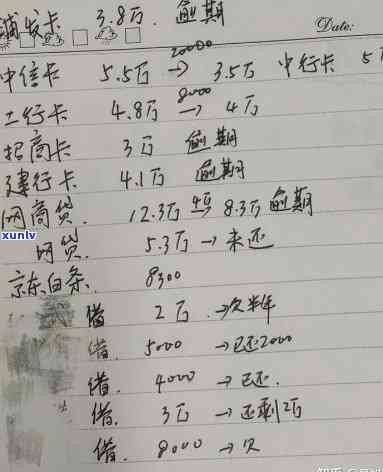 浦发卡 3.8万 逾期
Date:
20000
中信卡 5.5万 → 3.5万 中行卡 5万
8000
工行卡 4.8万 → 4万
招商卡 3万 逾期
建行卡 4.1万 逾期
网商贷. 12.3万 8.3万 逾期
xunlv
网贷. 5.3万 → 未还
京东白条. 8300
借 2万 → 欠半年
借. 5000 → 已还2000
借. 4000 → 已还.
借. 3万 → 还剩2万
借. 8000 → 欠
知乎